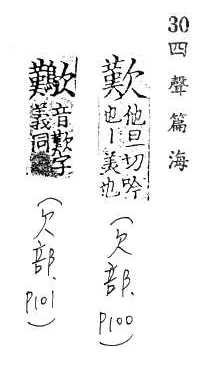 30四聲篇海
歎
他旦切吟
也丨美也
(欠部. P100)
音歎字
義同
(欠部. P101)